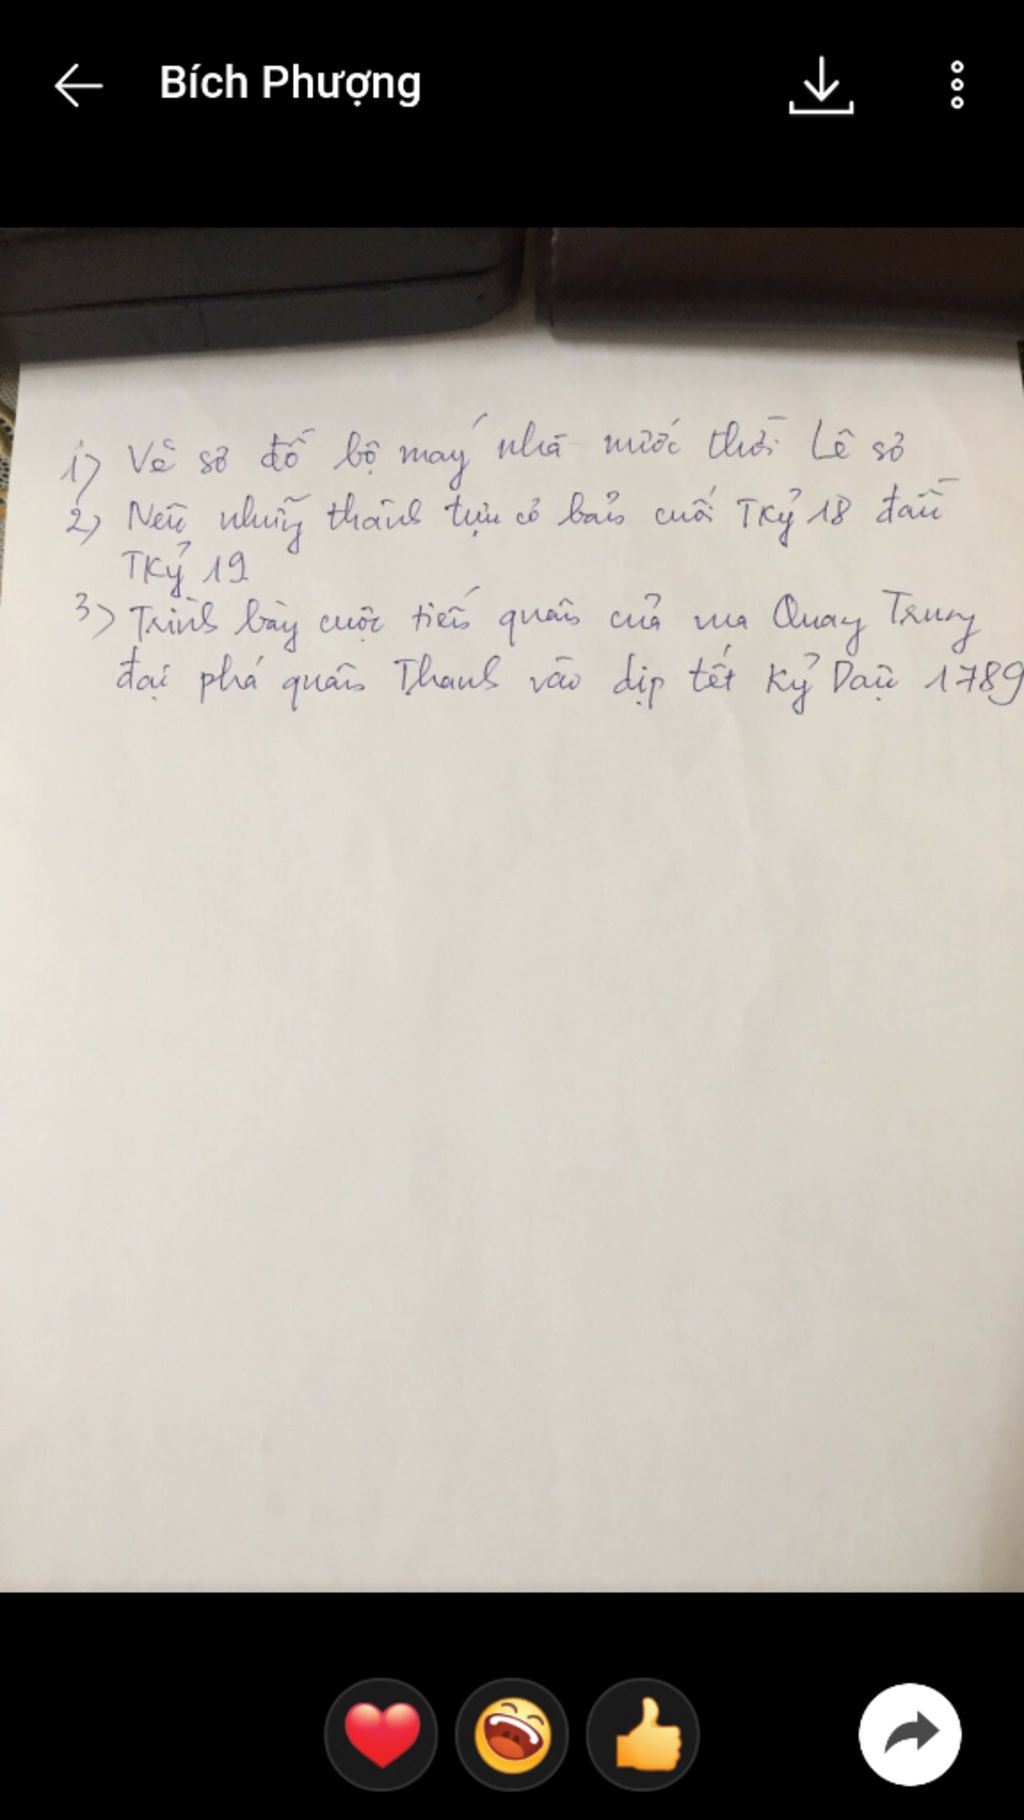 Bích Phượng
1) Vẽ sơ đồ bộ máy nhà nước thời Lê sơ
2) Nêu những thành tựu cơ bản cuối TKỷ 18 đầu
TKỷ 19
3) Trình bày cuộc tiến quân của vua Quang Trung
đại phá quân Thanh vào dịp tết Kỷ Dậu 1789